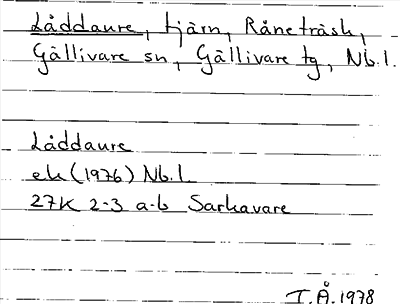 Låddaure, tjärn, Råneträsk,
Gällivare sn, Gällivare tg, Nb.l.
Låddaure
ek (1976) Nb.l.
27K 2-3 a-b Sarkavare
I.Å. 1978